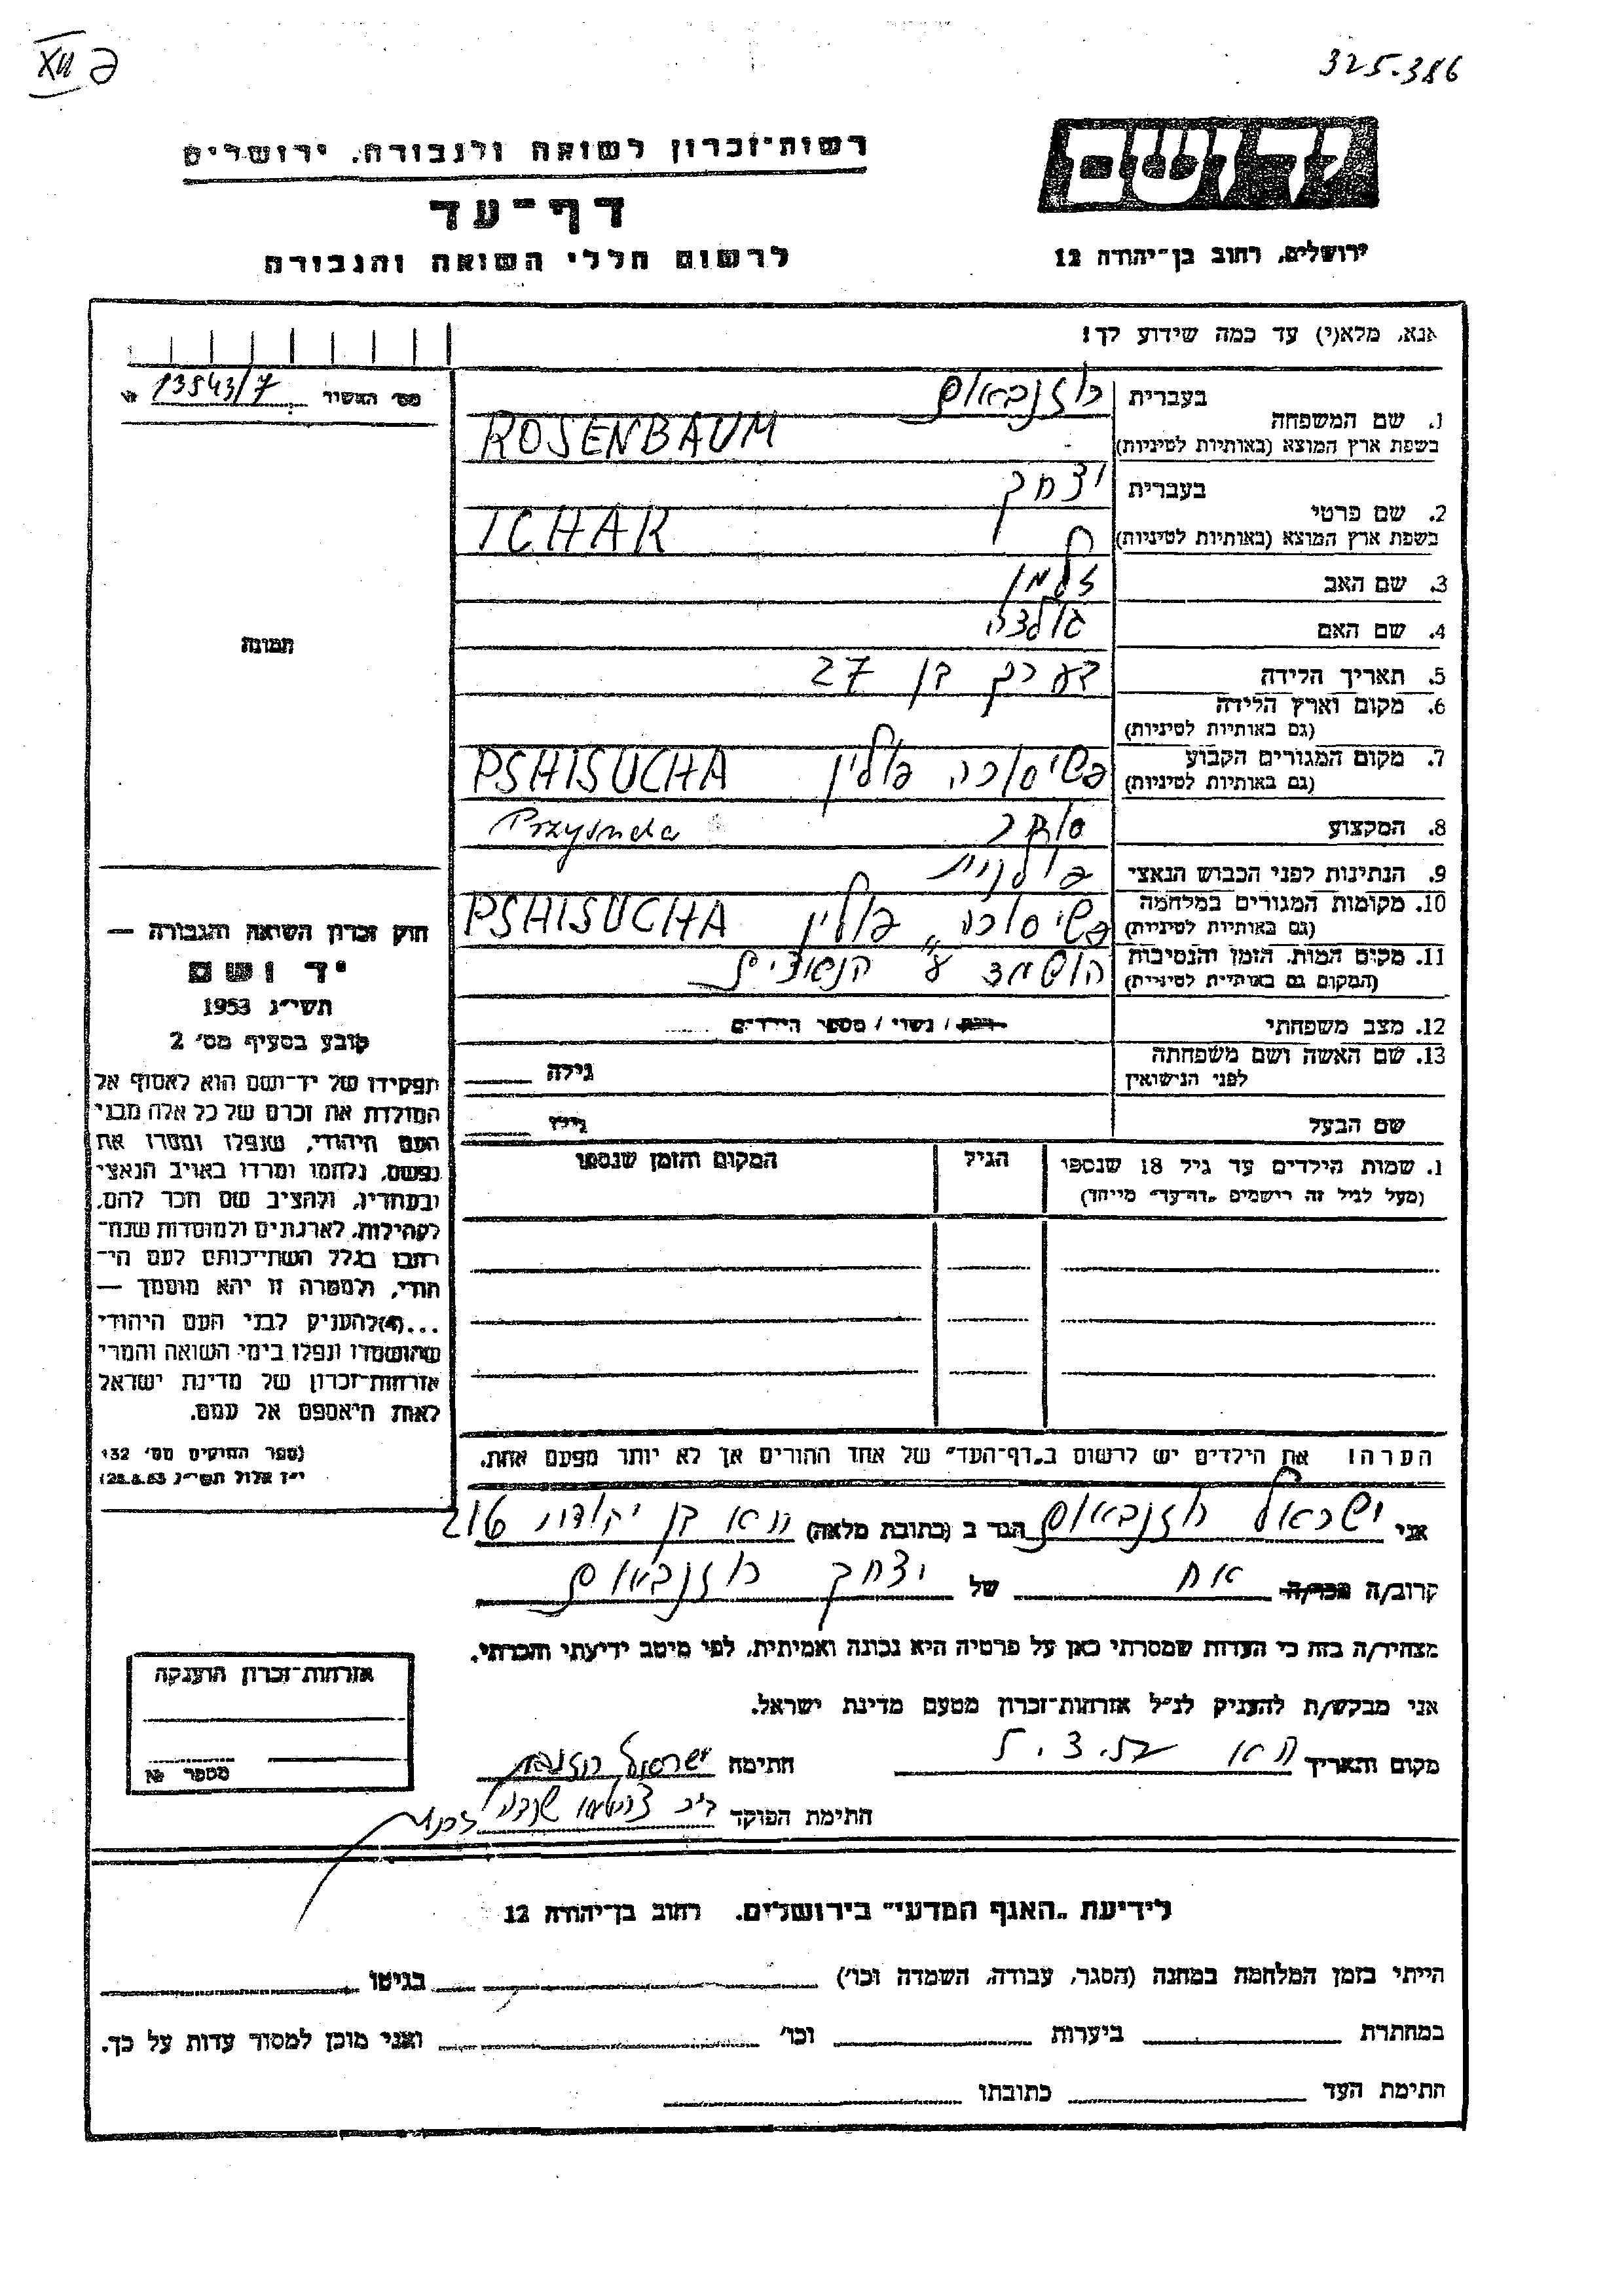 325.386
רשות־זכרון לשואה ולגבורה. ירושלים
דף־עד
לרשום חללי השואה והגבורה
יד ושם
ירושלים, רחוב בן־יהודה 12
אנא, מלא(י) עד כמה שידוע לך!
מס׳ האשור 13543/7 №
בעברית רוזנבאום
1. שם המשפחה
בשפת ארץ המוצא (באותיות לטיניות) ROSENBAUM
בעברית יצחק
2. שם פרטי
בשפת ארץ המוצא (באותיות לטיניות) ICHAK
3. שם האב זלמן
4. שם האם גולדה
5. תאריך הלידה בערך בן 27
6. מקום וארץ הלידה
(גם באותיות לטיניות)
7. מקום המגורים הקבוע פשיסוכה פולין PSHISUCHA
(גם באותיות לטיניות)
8. המקצוע סוחר Przysucha
9. הנתינות לפני הכבוש הנאצי פולנית
10. מקומות המגורים במלחמה פשיסוכה, פולין PSHISUCHA
(גם באותיות לטיניות)
11. מקום המות, הזמן והנסיבות הושמד ע״י הנאצים
(המקום גם באותיות לטיניות)
12. מצב משפחתי רווק / נשוי / מספר הילדים
13. שם האשה ושם משפחתה
לפני הנישואין גילה
שם הבעל גילו
תמונה
חוק זכרון השואה והגבורה —
יד ושם
תשי״ג 1953
קובע בסעיף מס׳ 2
תפקידו של יד־ושם הוא לאסוף אל
המולדת את זכרם של כל אלה מבני
העם היהודי, שנפלו ומסרו את
נפשם, נלחמו ומרדו באויב הנאצי
ובעוזריו, ולהציב שם וזכר להם,
לקהילות, לארגונים ולמוסדות שנח־
רבו בגלל השתייכותם לעם הי־
הודי, ולמטרה זו יהא מוסמך —
...(4) להעניק לבני העם היהודי
שהושמדו ונפלו בימי השואה והמרי
אזרחות־זכרון של מדינת ישראל
לאות היאספם אל עמם.
(ספר החוקים מס׳ 132
י״ז אלול תשי״ג 28.8.53)
1. שמות הילדים עד גיל 18 שנספו הגיל המקום והזמן שנספו
(מעל לגיל זה רישומים „דף־עד״ מיוחד)
הערה! את הילדים יש לרשום ב„דף־העד״ של אחד ההורים אך לא יותר מפעם אחת.
אני ישראל רוזנבאום הגר ב (כתובת מלאה)
קרוב/ה מכר/ה אח של יצחק רוזנבאום
מצהיר/ה בזה כי העדות שמסרתי כאן על פרטיה היא נכונה ואמיתית, לפי מיטב ידיעתי והכרתי.
אני מבקש/ת להעניק לנ״ל אזרחות־זכרון מטעם מדינת ישראל.
מקום ותאריך חתימה ישראל
חתימת הפוקד
אזרחות־זכרון הוענקה
מספר №
לידיעת „האגף המדעי״ בירושלים. רחוב בן־יהודה 12
הייתי בזמן המלחמה במחנה (הסגר, עבודה, השמדה וכו׳) בגיטו
במחתרת ביערות וכו׳ ואני מוכן למסור עדות על כך.
חתימת העד כתובתו